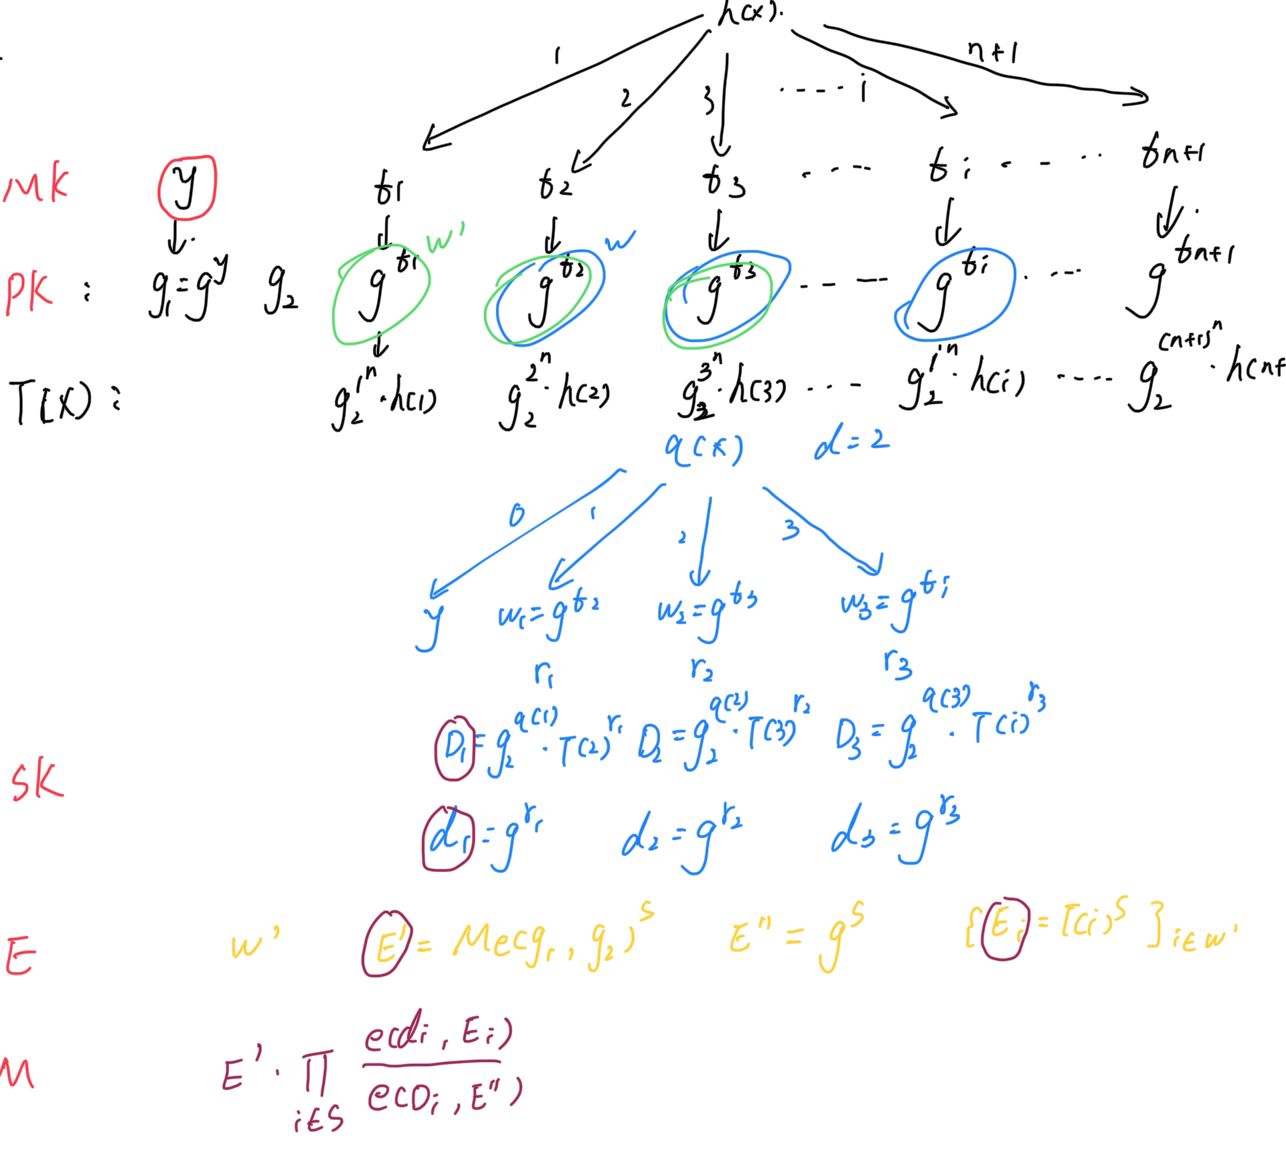 h(x).
1 2 3 ····· i n+1
MK y t1 t2 t3 ····· ti ····· tn+1
PK : g₁=g^y g₂ g^t1 w' g^t2 w g^t3 ····· g^ti ····· g^tn+1
T(x) : g₂^1^n · h(1) g₂^2^n · h(2) g₂^3^n · h(3) ····· g₂^i^n · h(i) ····· g₂^(n+1)^n · h(n+
q(x) d=2
0 1 2 3
y w₁=g^t2 w₂=g^t3 w₃=g^ti
r₁ r₂ r₃
D₁=g₂^q(1) · T(2)^r₁ D₂=g₂^q(2) · T(3)^r₂ D₃=g₂^q(3) · T(i)^r₃
SK
d₁=g^r₁ d₂=g^r₂ d₃=g^r₃
E w' E'=Me(g₁, g₂)^s E''=g^s {Ei=T(i)^s}i∈w'
M E' · ∏i∈S e(di, Ei) / e(Di, E'')